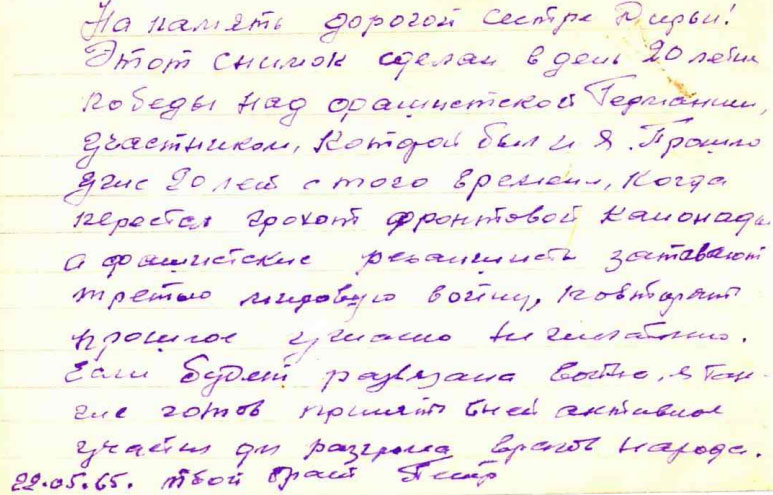 На память дорогой сестре Дирьи!
Этот снимок сделан в день 20 летия
победы над фашистской Германии,
участником, которой был и я. Прошло
уже 20 лет с того времени, когда
перестал грохот фронтовой канонады
а фашистские реваншисты затевают
третью мировую войну, повторят
прошлое ужасно нежелательно.
Если будет развязана война, я так-
же готов принять в ней активное
участие до разгрома врагов народа.
22.05.65. твой брат Петр